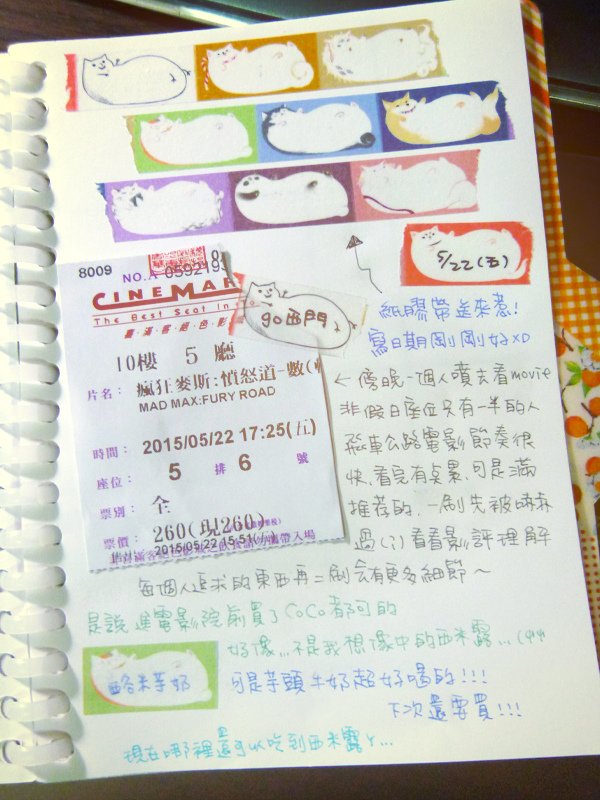 5/22(五)
8009
NO.A 0592193
CINEMAR
The Best Seat In
喜滿客絕色影
go西門
10樓 5 廳
片名: 瘋狂麥斯:憤怒道-數(
MAD MAX:FURY ROAD
時間: 2015/05/22 17:25(五)
座位: 5 排 6 號
票別: 全
票價: 260(現260)
2015/05/22 15:51
攜帶入場
紙膠帶進來惹!
寫日期剛剛好XD
← 傍晚一個人噴去看movie
非假日座位只有一半的人
飛車公路電影節奏很
快,看完有點累,可是滿
推荐的,一刷先被嚇麻
過(?)看看影評理解
每個人追求的東西再二刷會有更多細節~
是說進電影院前買了CoCo都可的
好像...不是我想像中的西米露...(
西米芋奶 可是芋頭牛奶超好喝的!!!
下次還要買!!!
現在哪裡還可以吃到西米露ㄚ...